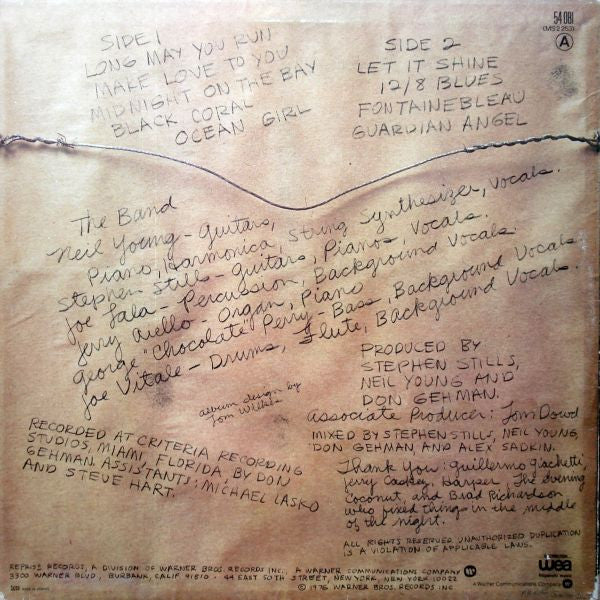 54 081
(MS 2253)
A
SIDE 1
LONG MAY YOU RUN
MAKE LOVE TO YOU
MIDNIGHT ON THE BAY
BLACK CORAL
OCEAN GIRL
SIDE 2
LET IT SHINE
12/8 BLUES
FONTAINEBLEAU
GUARDIAN ANGEL
The Band
Neil Young - Guitars,
Piano, Harmonica, String Synthesizer, Vocals.
Stephen Stills - Guitars, Pianos, Vocals.
Joe Lala - Percussion, Background Vocals.
Jerry Aiello - Organ, Piano
George "Chocolate" Perry - Bass, Background Vocals
Joe Vitale - Drums, Flute, Background Vocals.
album design by
Tom Wilkes
PRODUCED BY
STEPHEN STILLS,
NEIL YOUNG AND
DON GEHMAN.
Associate Producer: Tom Dowd
MIXED BY STEPHEN STILLS, NEIL YOUNG,
DON GEHMAN, AND ALEX SADKIN.
RECORDED AT CRITERIA RECORDING
STUDIOS, MIAMI, FLORIDA, BY DON
GEHMAN. ASSISTANTS: MICHAEL LASKO
AND STEVE HART.
Thank You: Guillermo Giachetti,
Jerry Caskey, Harper, The evening
Coconut, and Brad Richardson
who fixed things in the middle
of the night.
ALL RIGHTS RESERVED. UNAUTHORIZED DUPLICATION
IS A VIOLATION OF APPLICABLE LAWS.
REPRISE RECORDS, A DIVISION OF WARNER BROS. RECORDS INC., A WARNER COMMUNICATIONS COMPANY
3300 WARNER BLVD, BURBANK, CALIF. 91510 · 44 EAST 50TH STREET, NEW YORK, NEW YORK 10022
© 1976 WARNER BROS. RECORDS INC
wea
A Warner Communications Company